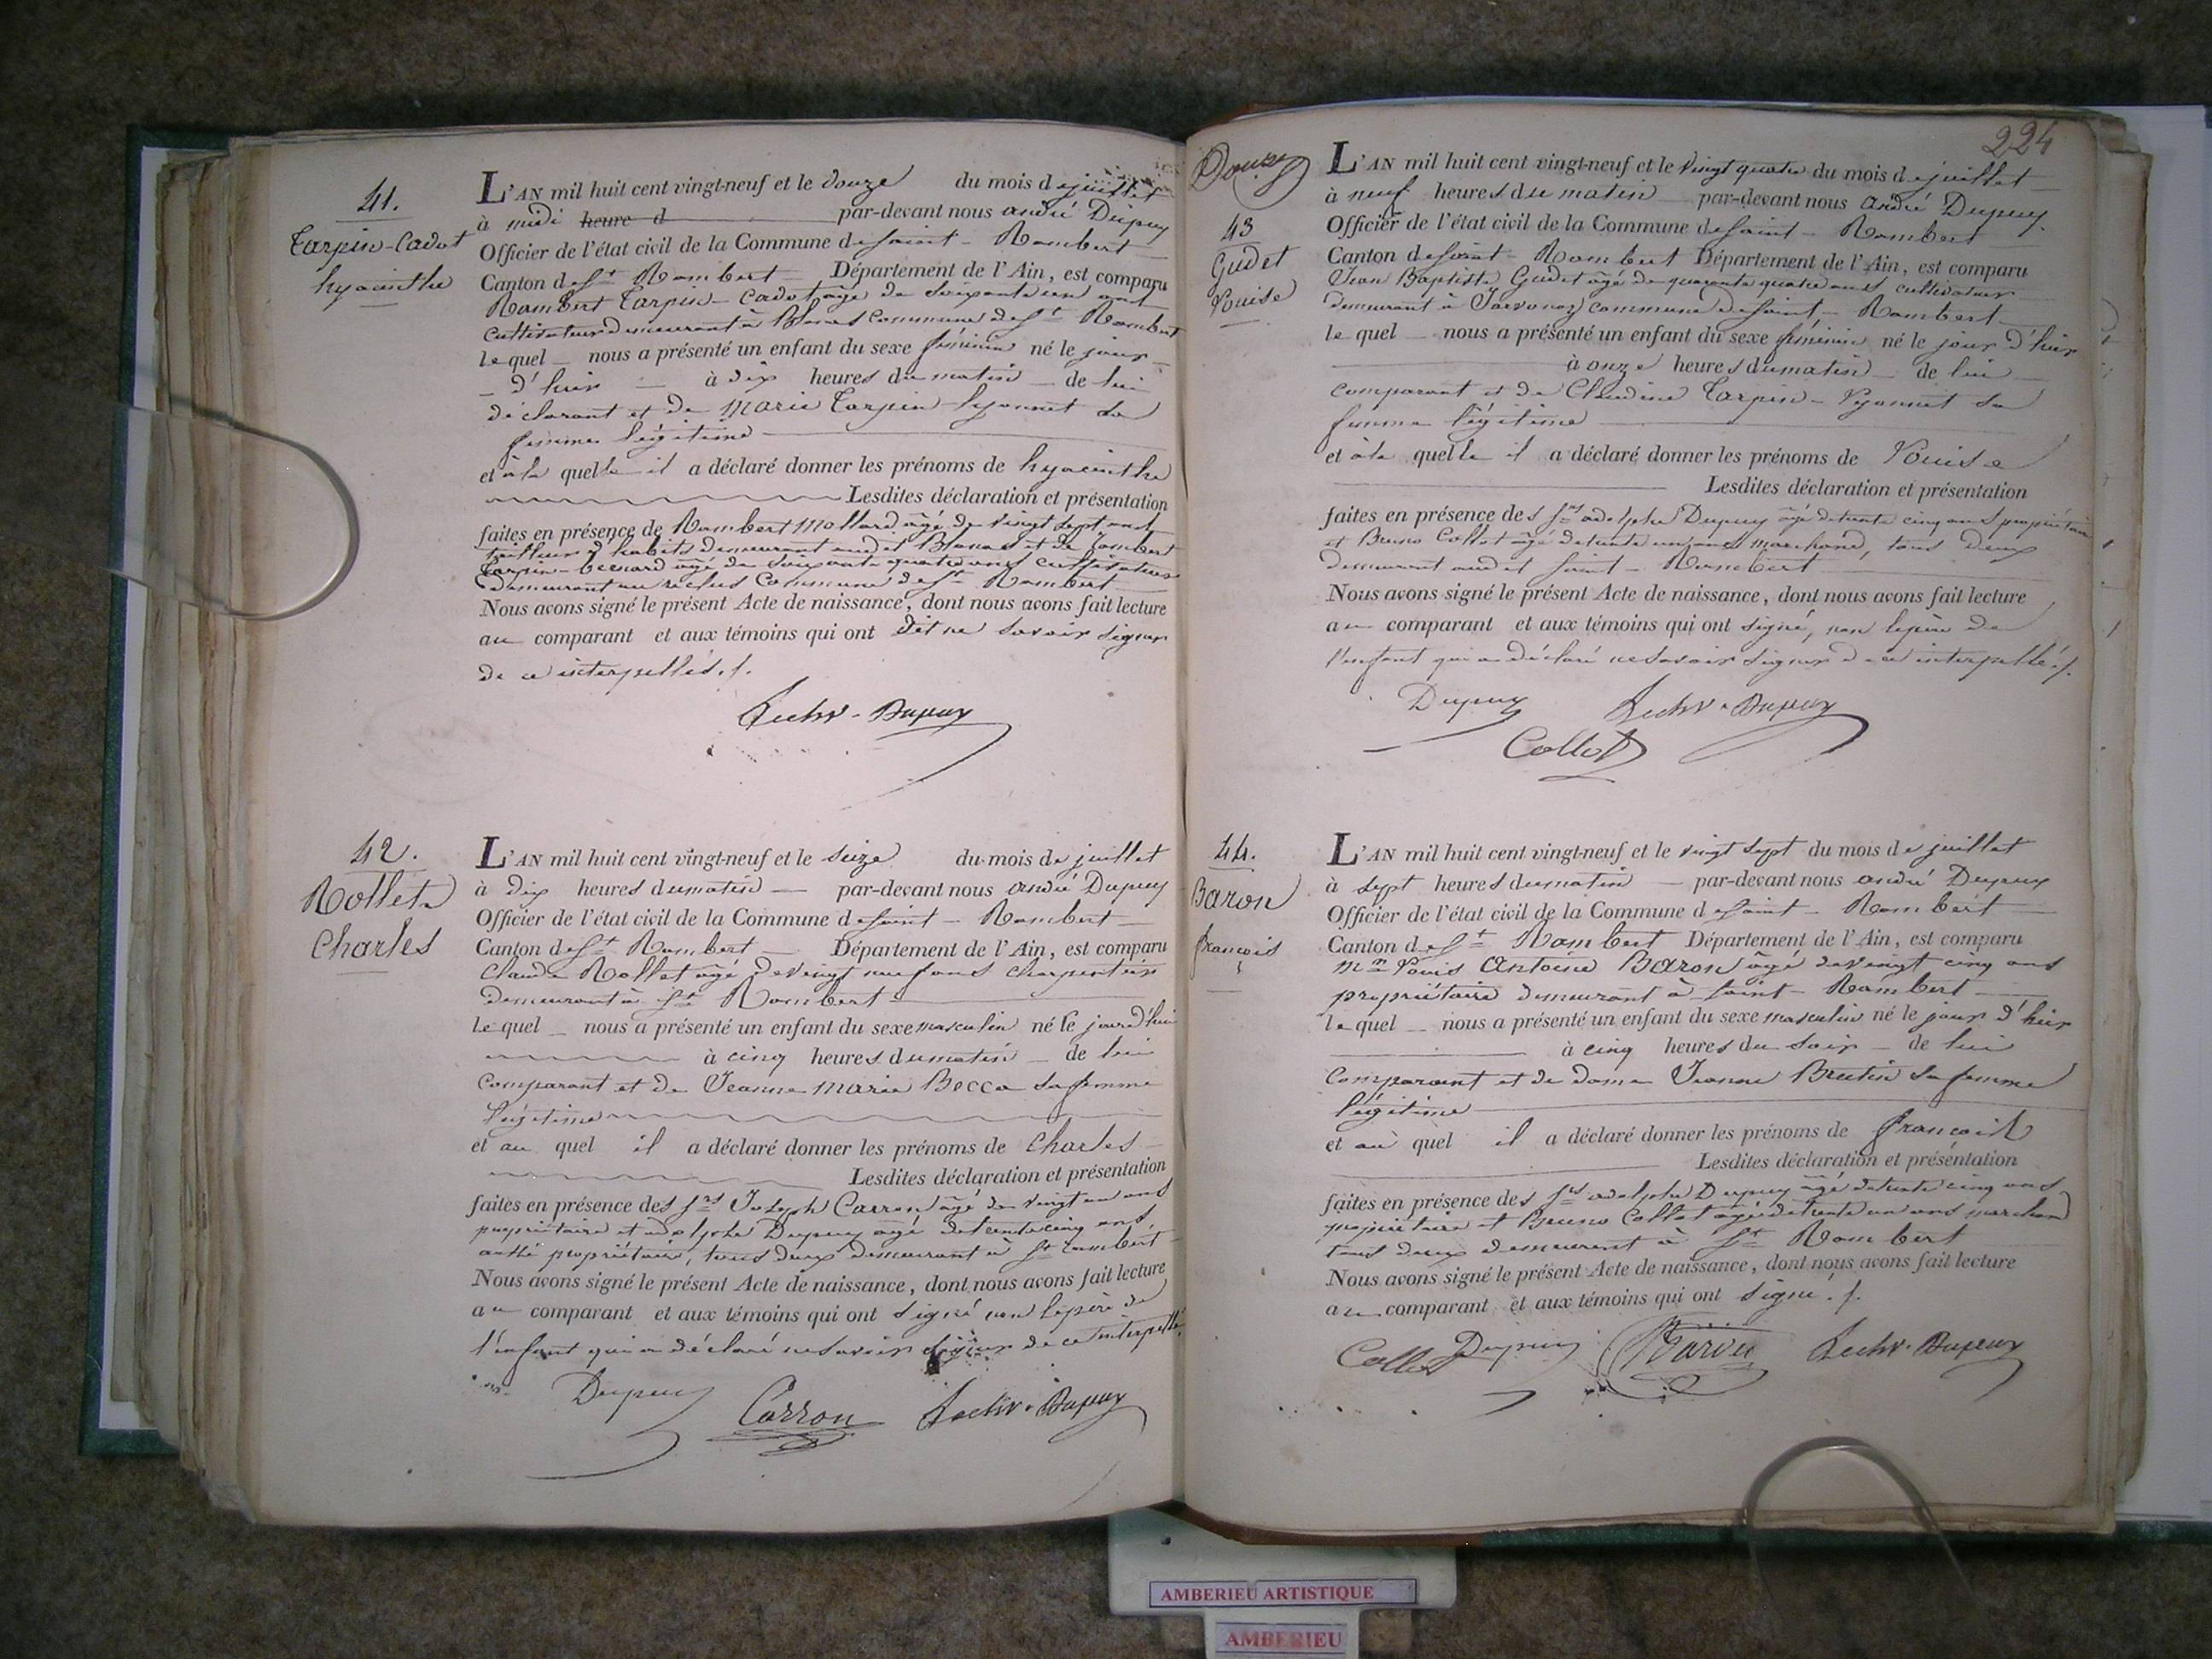 41.
Tarpin-Cadot
hyacinthe
L'AN mil huit cent vingt-neuf et le douze du mois de juillet
à midi heure d par-devant nous andré Dupuy
Officier de l'état civil de la Commune de saint-Rambert
Canton de St Rambert Département de l'Ain, est comparu
Rambert Tarpin-Cadot âgé de soixante un ans
cultivateur demeurant à Blanas commune de St Rambert
le quel nous a présenté un enfant du sexe féminin né le jour
d'hier à dix heures du matin de lui
déclarant et de Marie Tarpin-lyonnet sa
femme légitime
et à la quelle il a déclaré donner les prénoms de hyacinthe
Lesdites déclaration et présentation
faites en présence de Rambert Mollard âgé de vingt sept ans
tailleur d'habits demeurant audit Blanas et de Rambert
Tarpin-bernard âgé de soixante quatre ans cultivateur
demeurant au reclus Commune de St Rambert
Nous avons signé le présent Acte de naissance, dont nous avons fait lecture
au comparant et aux témoins qui ont dit ne savoir signer
de ce interpellés ./.
Dupuy
42.
Rollet
Charles
L'AN mil huit cent vingt-neuf et le seize du mois de juillet
à dix heures du matin par-devant nous andré Dupuy
Officier de l'état civil de la Commune de saint-Rambert
Canton de St Rambert Département de l'Ain, est comparu
Claude Rollet âgé de vingt neuf ans charpentier
demeurant à St Rambert
le quel nous a présenté un enfant du sexe masculin né le jour d'hui
à cinq heures du matin de lui
comparant et de Jeanne Marie Bocca sa femme
légitime
et au quel il a déclaré donner les prénoms de Charles
Lesdites déclaration et présentation
faites en présence des Srs Joseph Carron âgé de vingt un ans
propriétaire et adolphe Dupuy âgé de trente cinq ans
aussi propriétaire, tous deux demeurant à St rambert
Nous avons signé le présent Acte de naissance, dont nous avons fait lecture
au comparant et aux témoins qui ont signé non le père de
l'enfant qui a déclaré ne savoir signer de ce interpellé
Dupuy Carron Dupuy
224
Douze
43
Gudet
Louise
L'AN mil huit cent vingt-neuf et le vingt quatre du mois de juillet
à neuf heures du matin par-devant nous andré Dupuy
Officier de l'état civil de la Commune de saint-Rambert
Canton de saint-Rambert Département de l'Ain, est comparu
Jean Baptiste Gudet âgé de quarante quatre ans cultivateur
demeurant à Javornoz commune de saint-Rambert
le quel nous a présenté un enfant du sexe féminin né le jour d'hier
à onze heures du matin de lui
comparant et de Claudine Tarpin-Lyonnet sa
femme légitime
et à la quelle il a déclaré donner les prénoms de Louise
Lesdites déclaration et présentation
faites en présence des Srs adolphe Dupuy âgé de trente cinq ans propriétaire
et Bruno Collot âgé de trente un ans marchand, tous deux
demeurant audit saint-Rambert
Nous avons signé le présent Acte de naissance, dont nous avons fait lecture
au comparant et aux témoins qui ont signé, non le père de
l'enfant qui a déclaré ne savoir signer de ce interpellé ./.
Dupuy Dupuy
Collot
44.
Baron
françois
L'AN mil huit cent vingt-neuf et le vingt sept du mois de juillet
à sept heures du matin par-devant nous andré Dupuy
Officier de l'état civil de la Commune de saint-Rambert
Canton de St Rambert Département de l'Ain, est comparu
Louis Antoine Baron âgé de vingt cinq ans
propriétaire demeurant à saint-Rambert
le quel nous a présenté un enfant du sexe masculin né le jour d'hier
à cinq heures du soir de lui
comparant et de dame Jeanne Brutin sa femme
légitime
et au quel il a déclaré donner les prénoms de françois
Lesdites déclaration et présentation
faites en présence des Srs adolphe Dupuy âgé de trente cinq ans
propriétaire et Bruno Collot âgé de trente un ans marchand
tous deux demeurant à St Rambert
Nous avons signé le présent Acte de naissance, dont nous avons fait lecture
au comparant et aux témoins qui ont signé ./.
Collot Dupuy Baron Dupuy
AMBERIEU ARTISTIQUE
AMBERIEU